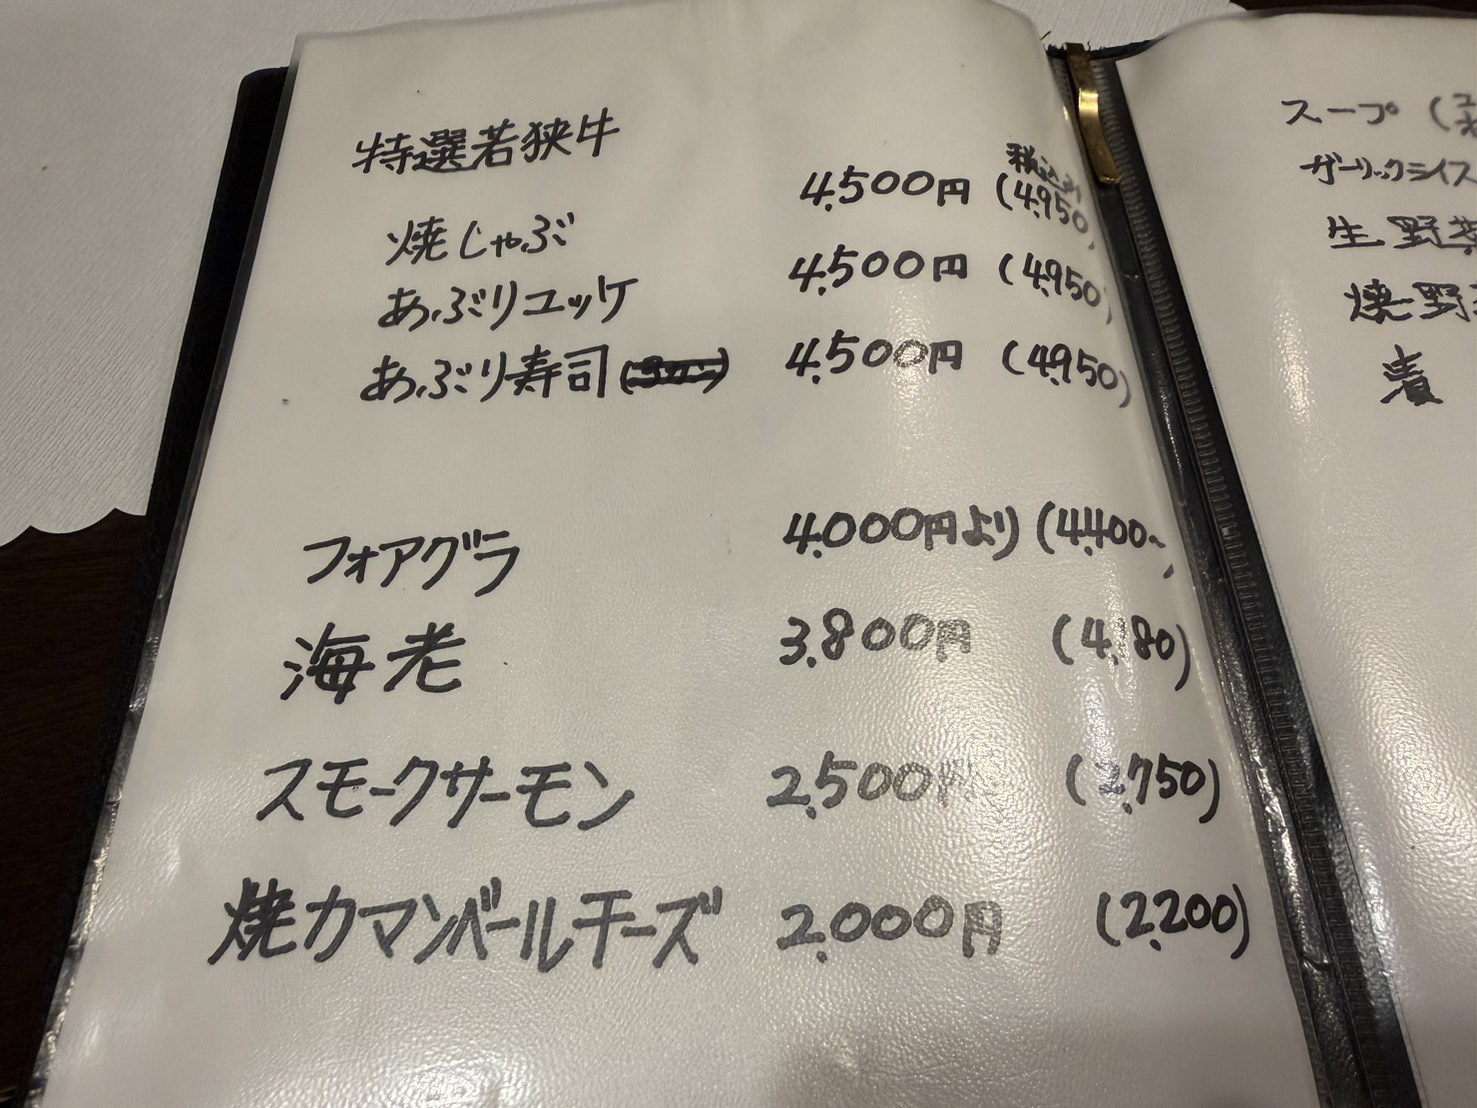 特選若狭牛
税込み
焼しゃぶ 4,500円 (4,950)
あぶりユッケ 4,500円 (4,950)
あぶり寿司 4,500円 (4,950)
フォアグラ 4,000円より (4,400〜)
海老 3,800円 (4,180)
スモークサーモン 2,500円 (2,750)
焼カマンベールチーズ 2,000円 (2,200)
スープ (
ガーリックライス
生野菜
焼野